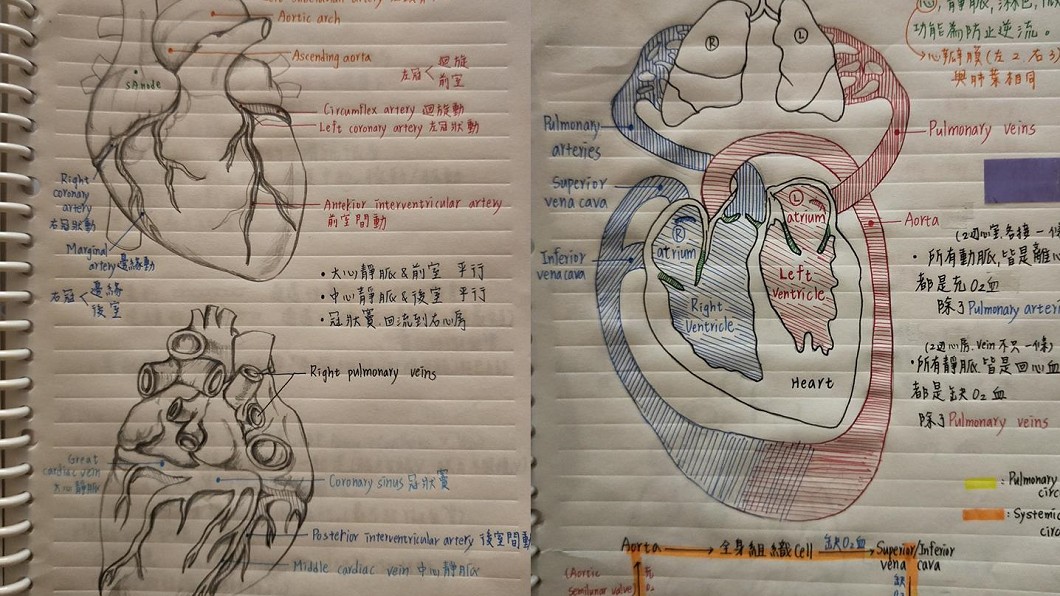 Aortic arch
Ascending aorta
左冠 < 迴旋
前室
SA node
Circumflex artery 迴旋動
Left coronary artery 左冠狀動
Right
coronary
artery
右冠狀動
Anterior interventricular artery
前室間動
Marginal
artery 邊緣動
右冠 < 邊緣
後室
• 大心靜脈&前室 平行
• 中心靜脈&後室 平行
• 冠狀竇 回流到右心房
Right pulmonary veins
Great
cardiac vein
大心靜脈
Coronary sinus 冠狀竇
Posterior interventricular artery 後室間動
Middle cardiac vein 中心靜脈
R
L
Pulmonary
arteries
Superior
vena cava
Inferior
vena cava
R
atrium
L
atrium
Left
Ventricle
Right
Ventricle
Heart
Pulmonary veins
Aorta
功能為防止逆流。
→心臟瓣膜(左2右3)
與肺葉相同
(2邊心室各接一條
• 所有動脈,皆是離心
都是充O₂血
除了Pulmonary arter
(2邊心房.vein不只一條)
• 所有靜脈,皆是回心血
都是缺O₂血
除了Pulmonary veins
: Pulmonary
circ
: Systemic
circ
Aorta → 全身組織cell 缺O₂血 → Superior/Inferior
vena cava
(Aortic
semilunar valve)
充
O₂
缺
O₂